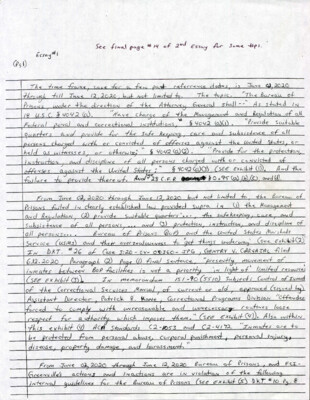 See final page #14 of 2nd Essay for some tips.
Essay #1
Q.1)
The time frame, save for a few past reference dates, is June 12, 2020
through till June 12, 2020 but not limited to. The topic: "The Bureau of
Prisons, under the direction of the Attorney General shall--" As stated in
18 U.S.C § 4042(a). "Have charge of the management and regulation of all
Federal penal and correctional institutions." § 4042 "Provide suitable
quarters and provide for the safe keeping, care and subsistence of all
persons charged with or convicted of offenses against the United States, or
held as witnesses, or otherwise;" § 4042 "Provide for the protection,
instruction, and discipline of all persons charged with or convicted of
offenses against the United States;" § 4042 (See Exhibit), And the
failure to provide thereof. And
From June 12, 2020 through June 12, 2020 but not limited to the Bureau of
Prisons failed in clearly established law provided supra i.e. (1) the management
and Regulation, (2) provide suitable quarters... the safekeeping, care, and
Subsistence of all persons, ... and (3) protection, instruction, and discipline of
all persons... Bureau of Prisons and the United States Marshals
Service (USMS) and their
In DKT #26 of Case filed
2020. Paragraph Page Final Sentence, "Presently, movement of
inmates between BOP facilities is not a priority in light of limited resources
(See exhibit). In memorandum Subords Control of
of the Correctional Services Manual, of current or old, approved (signed by)
Assistant Director, Patrick R. Correctional Programs Division "Offenders
forced to comply with unreasonable and unnecessary routines lose
respect for authority which impose them." (See Exhibit). Also within
this exhibit ACA Standards and "Inmates are to
be protected from personal abuse, corporal punishment, personal injury,
disease, property damage, and harassment."
From June 12, 2020 through June 12, 2020 Bureau of Prisons, and FCI-
Greenville's actions and inactions are in violation of the following
internal guidelines for the Bureau of Prisons (See exhibit) DKT #10 Pg. 8